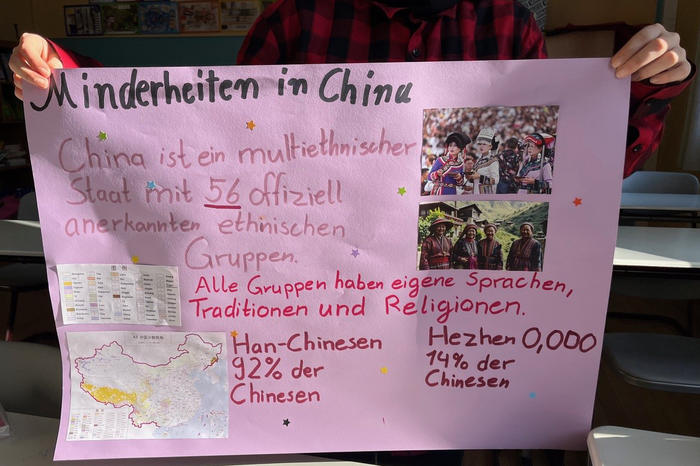 Minderheiten in China
China ist ein multiethnischer
Staat mit 56 offiziell
anerkannten ethnischen
Gruppen.
Alle Gruppen haben eigene Sprachen,
Traditionen und Religionen.
Han-Chinesen
92% der
Chinesen
Hezhen 0,000
14% der
Chinesen